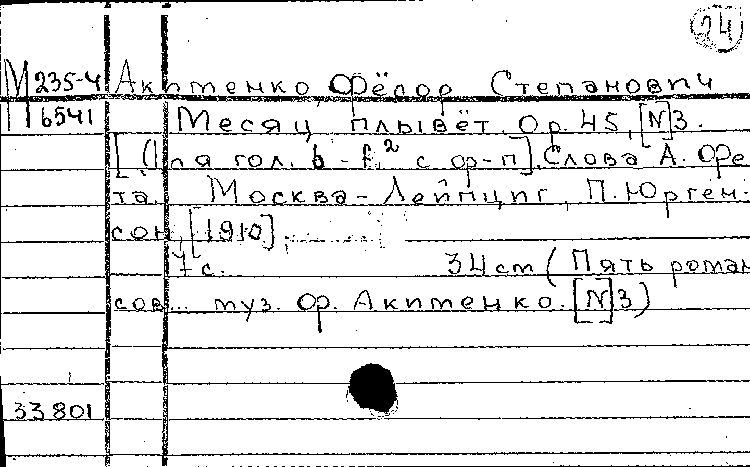 24
М 235-4 Акименко, Фёдор Степанович
П 6541 Месяц плывёт. Op. 45, [N]3.
[Для гол. b-f² с ф-п]. Слова А. Фе-
та. Москва-Лейпциг, П. Юрген-
сон, [1910].
7 с. 34 cm (Пять роман
сов... муз. Ф. Акименко. [N]3)
33801